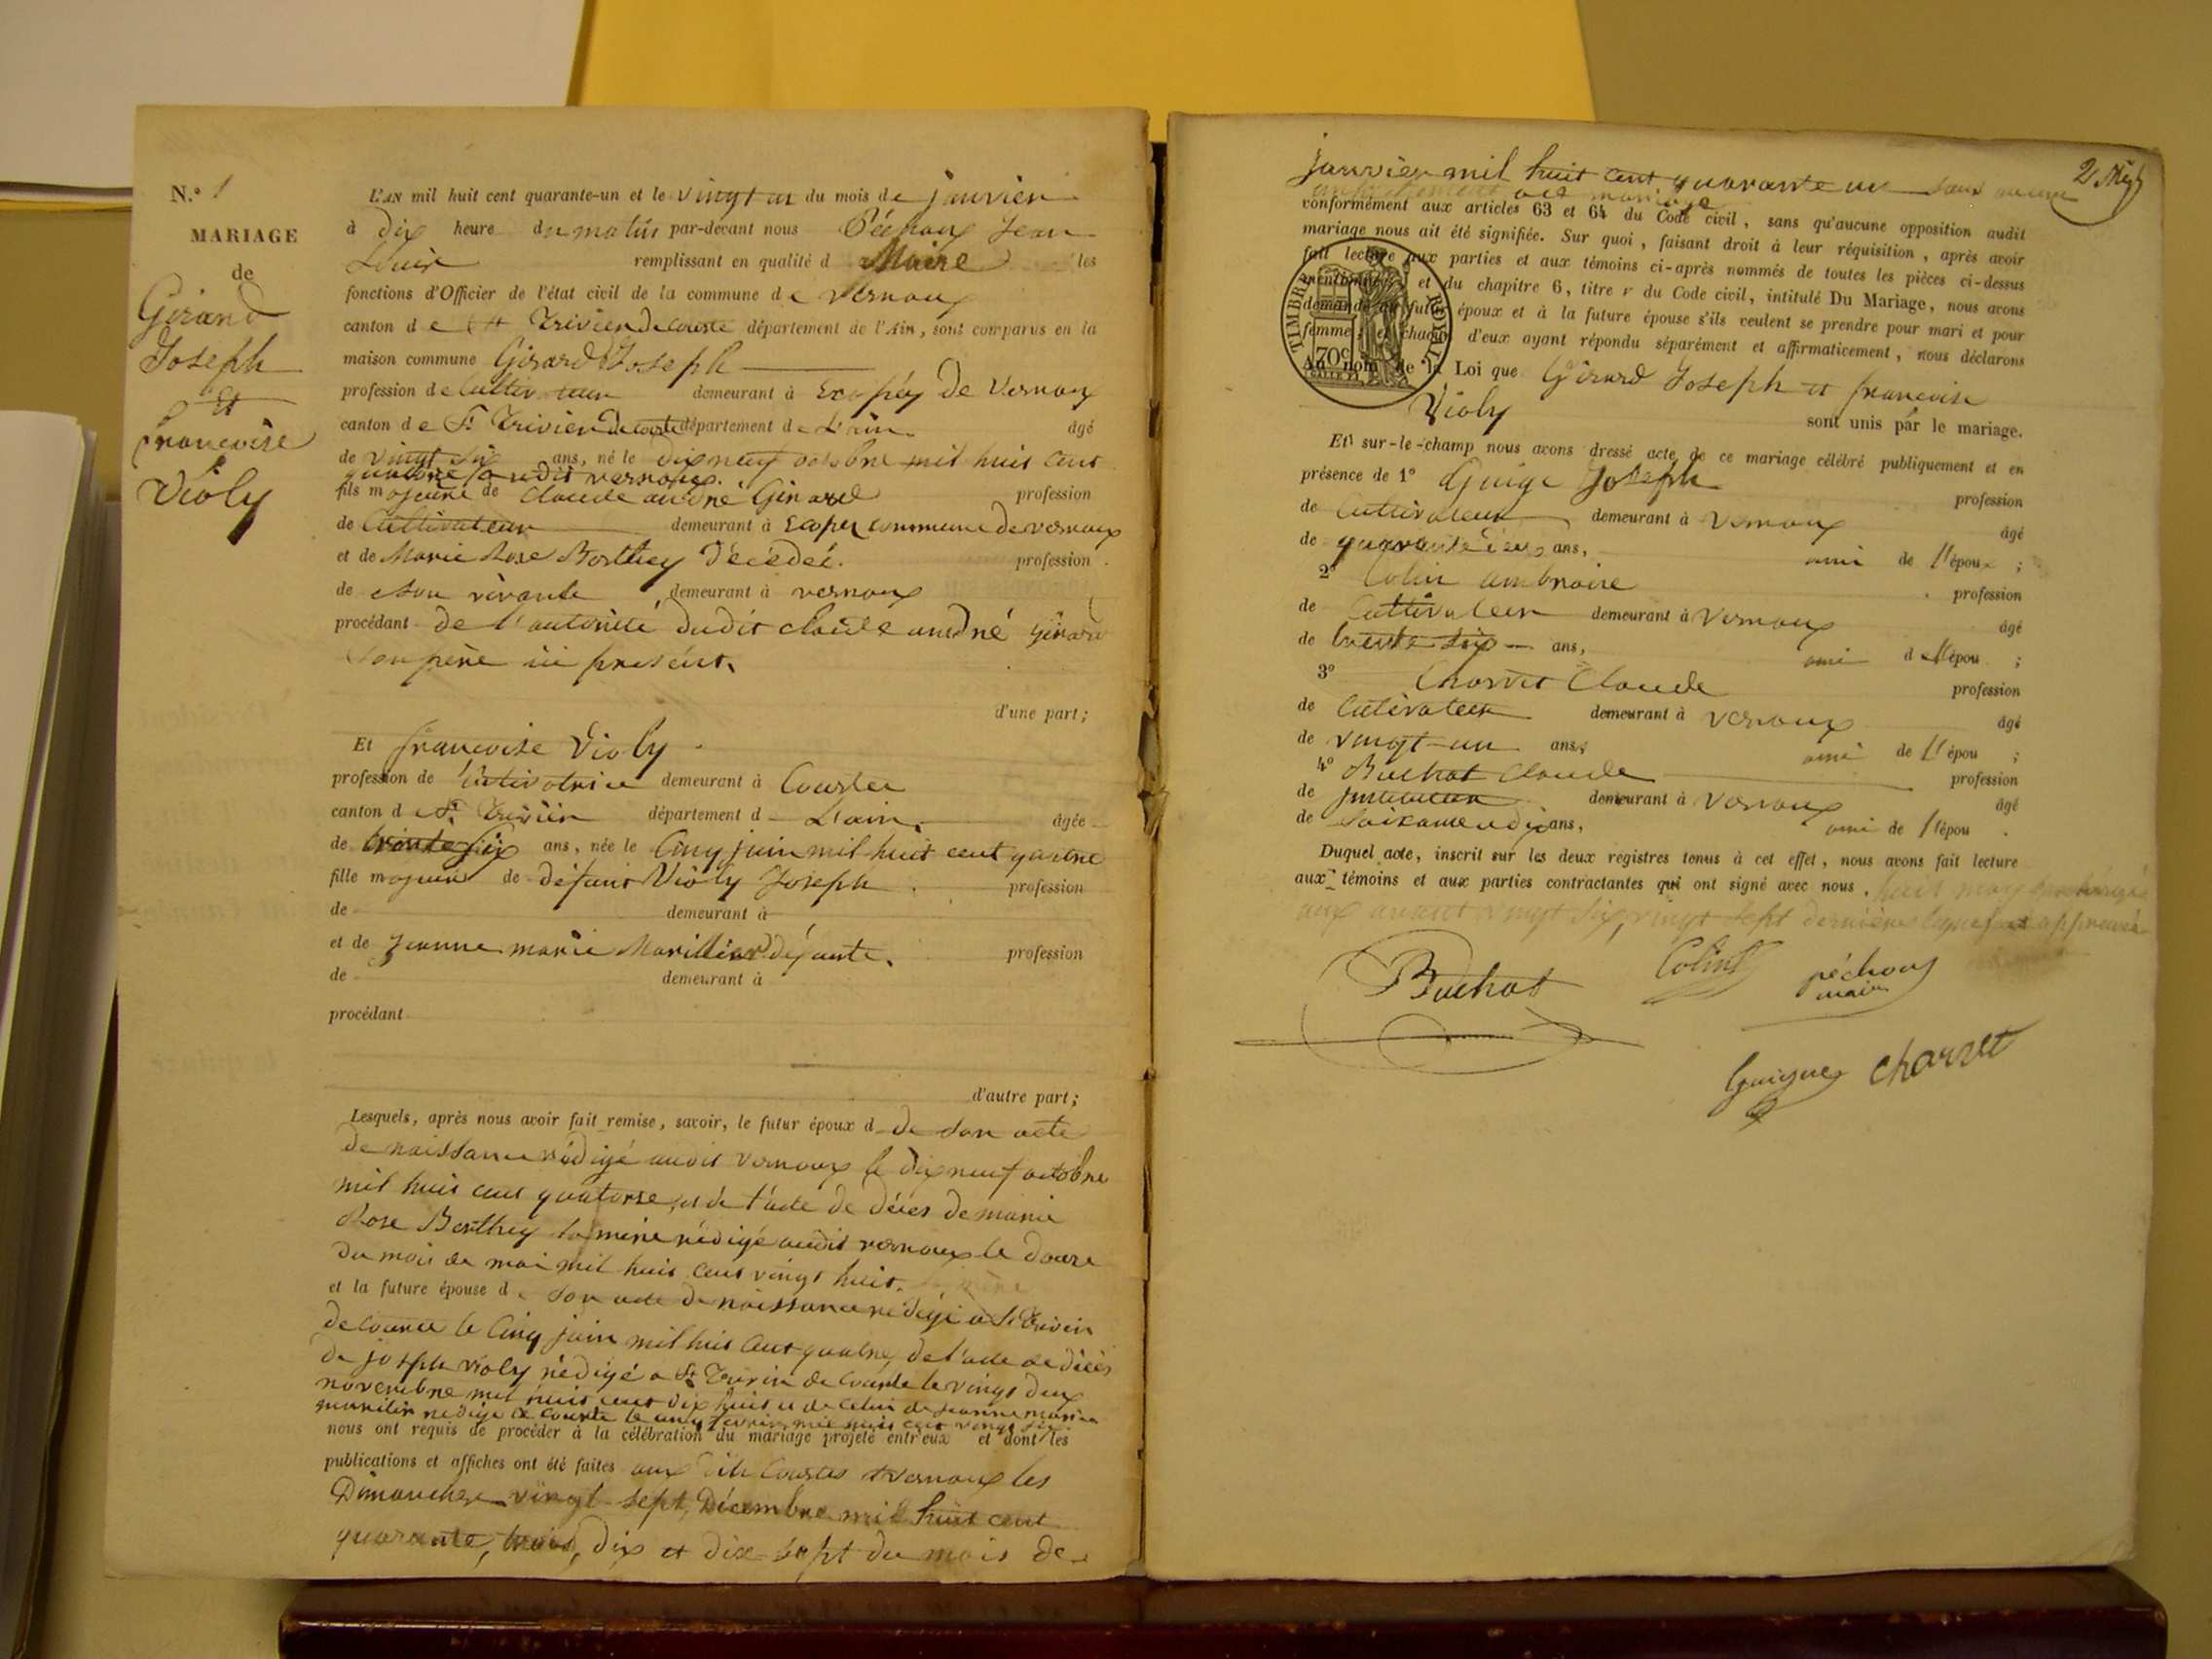 N.° 1
MARIAGE
de
Girard
Joseph
et
francoise
Violy
L'AN mil huit cent quarante-un et le vingt un du mois de janvier
à dix heure du matin par-devant nous Péchoux Jean
Louis remplissant en qualité d Maire les
fonctions d'Officier de l'état civil de la commune de vernoux
canton de St Trivier de courte département de l'Ain, sont comparus en la
maison commune Girard Joseph
profession de Cultivateur demeurant à Excopey de Vernoux
canton de St Trivier de courte département de L'ain. âgé
de vingt six ans, né le dix neuf octobre mil huit cent
quatorse audit vernoux.
fils majeure de Claude andré Girard profession
de Cultivateur demeurant à Excopey commune de vernoux
et de Marie Rose Berthey décédée. profession
de son vivante demeurant à vernoux
procédant de l'autorité dudit claude andré girard
son père ici présent.
d'une part;
Et francoise Violy
profession de Cultivatrice demeurant à Courtes
canton d St Trivier département d L'ain. âgée
de trente six ans, née le Cinq juin mil huit cent quatre
fille majeure de défunt Violy Joseph profession
de demeurant à
et de Jeanne marie Marillier défunte. profession
de demeurant à
procédant
d'autre part;
Lesquels, après nous avoir fait remise, savoir, le futur époux d de son acte
de naissance rédigé audit vernoux le dix neuf octobre
mil huit cent quatorse, et de l'acte de décès de marie
Rose Berthey sa mère rédigé audit vernoux le douze
du mois de mai mil huit cent vingt huit.
et la future épouse de son acte de naissance rédigé à St Trivier
de courte le Cinq juin mil huit cent quatre, de l'acte de décès
de joseph violy rédigé a St Trivier de Courte le vingt deux
novembre mil huit cent dix huit et de celui de jeanne marie
marilier rédigé de courte le cinq février mil huit cent vingt six
nous ont requis de procéder à la célébration du mariage projeté entr'eux et dont les
publications et affiches ont été faites aux dits Courtes et vernoux les
Dimanches vingt-sept, Décembre mil huit cent
quarante, trois, dix et dix-sept du mois de
2
janvier mil huit cent quarante un sans aucun
conformément aux articles 63 et 64 du Code civil, sans qu'aucune opposition audit
mariage nous ait été signifiée. Sur quoi, faisant droit à leur réquisition, après avoir
fait lecture aux parties et aux témoins ci-après nommés de toutes les pièces ci-dessus
mentionnées et du chapitre 6, titre v du Code civil, intitulé Du Mariage, nous avons
demandé au futur époux et à la future épouse s'ils veulent se prendre pour mari et pour
femme; et chacun d'eux ayant répondu séparément et affirmativement, nous déclarons
Au nom de la Loi que Girard Joseph et francoise
Violy sont unis par le mariage.
TIMBRE ROYAL
70c
Et sur-le-champ nous avons dressé acte de ce mariage célébré publiquement et en
présence de 1° Guige Joseph profession
de Cultivateur demeurant à Vernoux âgé
de quarante ans, ami de l'époux;
2° Colin ambroise profession
de Cultivateur demeurant à Vernoux âgé
de trente six ans, ami de l'épou;
3° Charvet Claude profession
de Cultivateur demeurant à vernoux âgé
de vingt-un ans, ami de l'épou;
4° Buchat Claude profession
de Instituteur demeurant à Vernoux âgé
de Soixante dix ans, ami de l'épou.
Duquel acte, inscrit sur les deux registres tenus à cet effet, nous avons fait lecture
aux témoins et aux parties contractantes qui ont signé avec nous.
vingt six, vingt sept dernières lignes et approuvée
Buchat
Colin
péchoux
maire
Guigue
Charvet